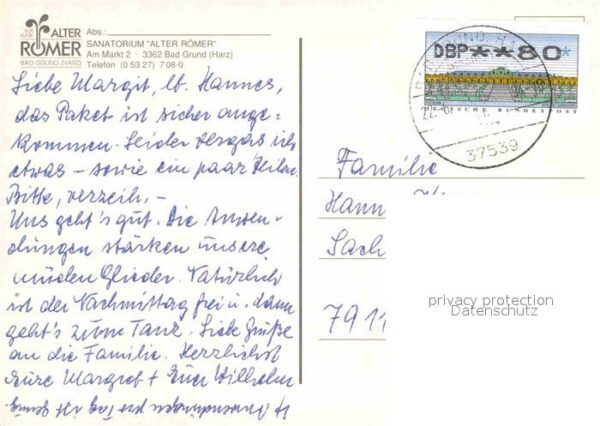 KUR
KLINIK
ALTER
RÖMER
BAD GRUND (HARZ)
Abs.:
SANATORIUM "ALTER RÖMER"
Am Markt 2 · 3362 Bad Grund (Harz)
Telefon (0 53 27) 7 08-0
Liebe Margit, lb. Hannes,
das Paket ist sicher ange-
kommen. Leider vergaß ich
etwas – sowie ein paar
Bitte, verzeih, –
Uns geht's gut. Die Anwen-
dungen stärken unsere
müden Glieder. Natürlich
ist der Nachmittag frei u. dann
geht's zum Tanz. Liebe Grüße
an die Familie. Herzlichst
Eure Margret + Euer Wilhelm
4 Anwendungen pro Tag ist
DBP**80*
DEUTSCHE BUNDESPOST
37539
Familie
Hann
Sach
7911
privacy protection
Datenschutz